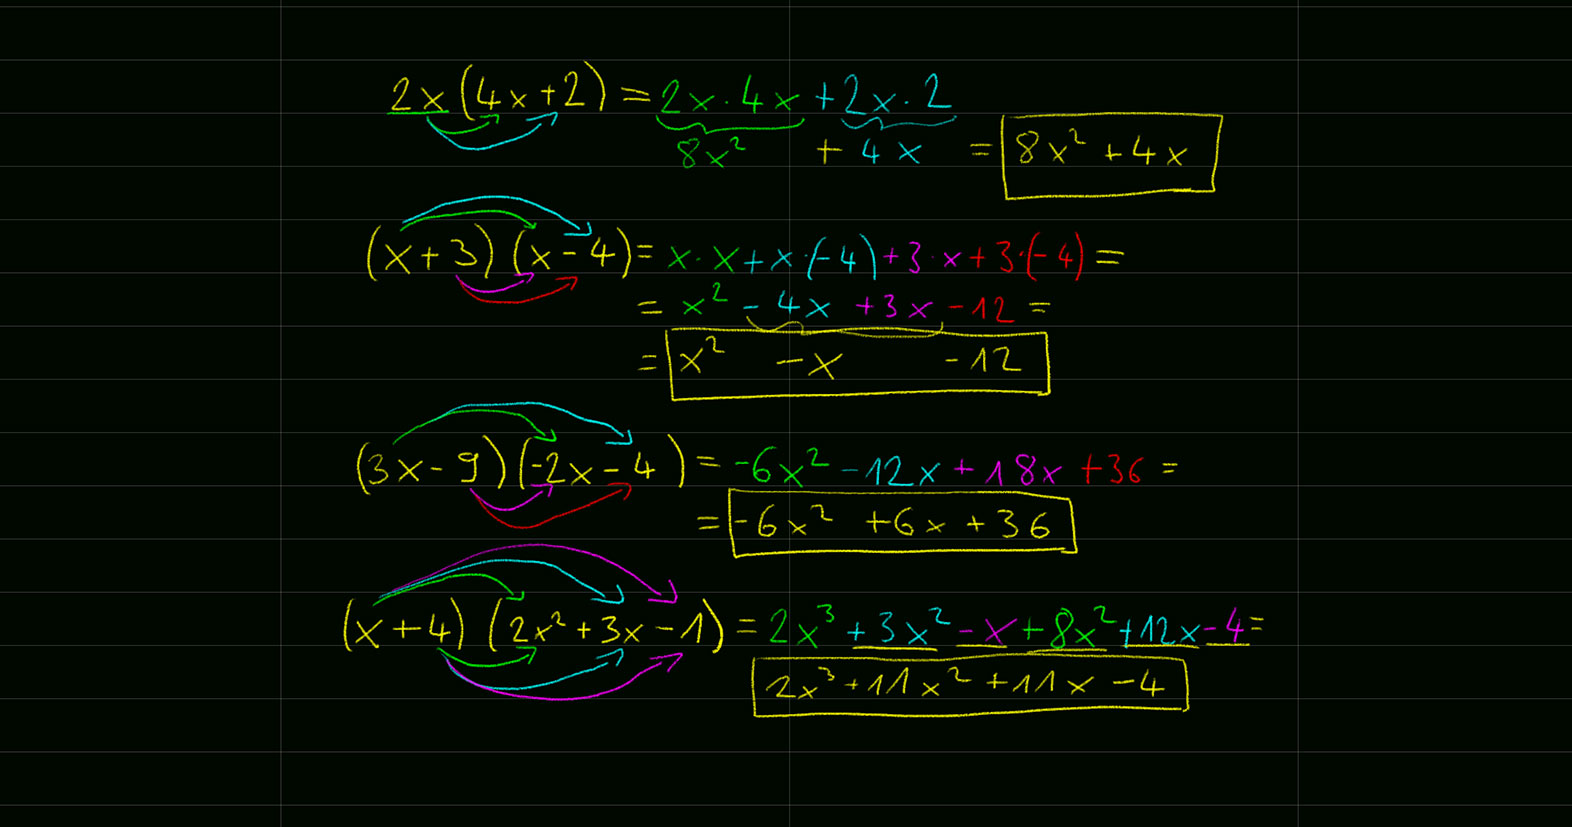 2x(4x+2) = 2x·4x + 2x·2
8x² + 4x = 8x² + 4x
(x+3)(x-4) = x·x + x·(-4) + 3·x + 3·(-4) =
= x² - 4x + 3x - 12 =
= x² - x - 12
(3x-9)(-2x-4) = -6x² - 12x + 18x + 36 =
= -6x² + 6x + 36
(x+4)(2x²+3x-1) = 2x³ + 3x² - x + 8x² + 12x - 4 =
2x³ + 11x² + 11x - 4